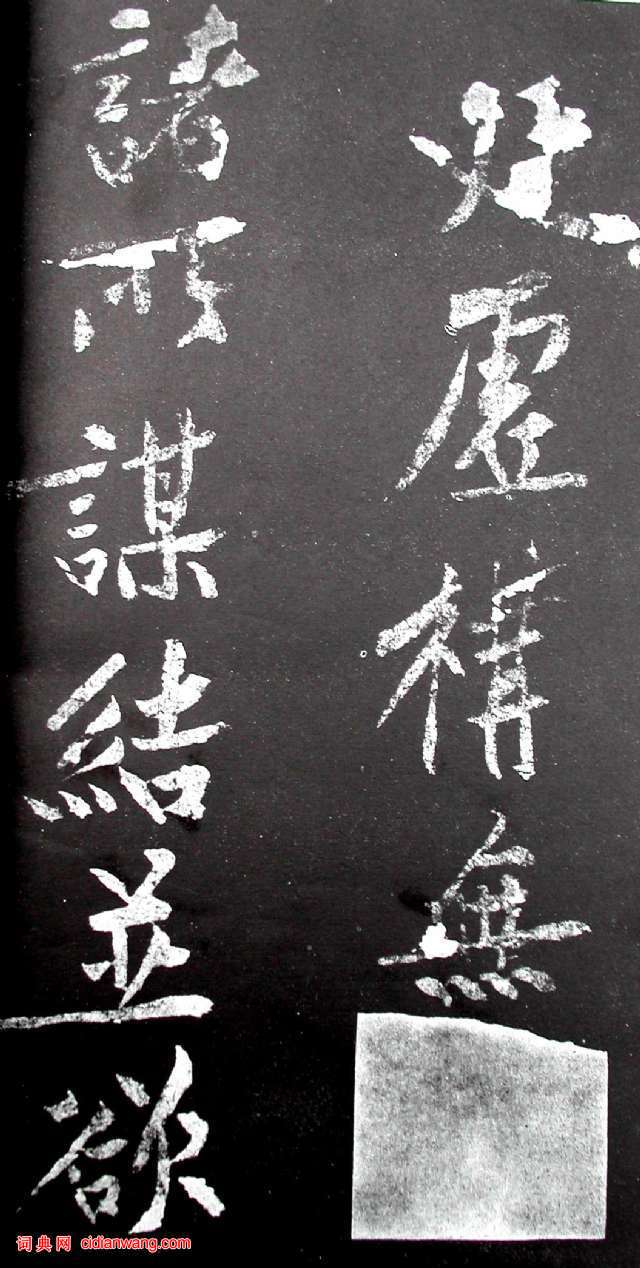 虛構無
諸所謀結並欲
词典网 cidianwang.com